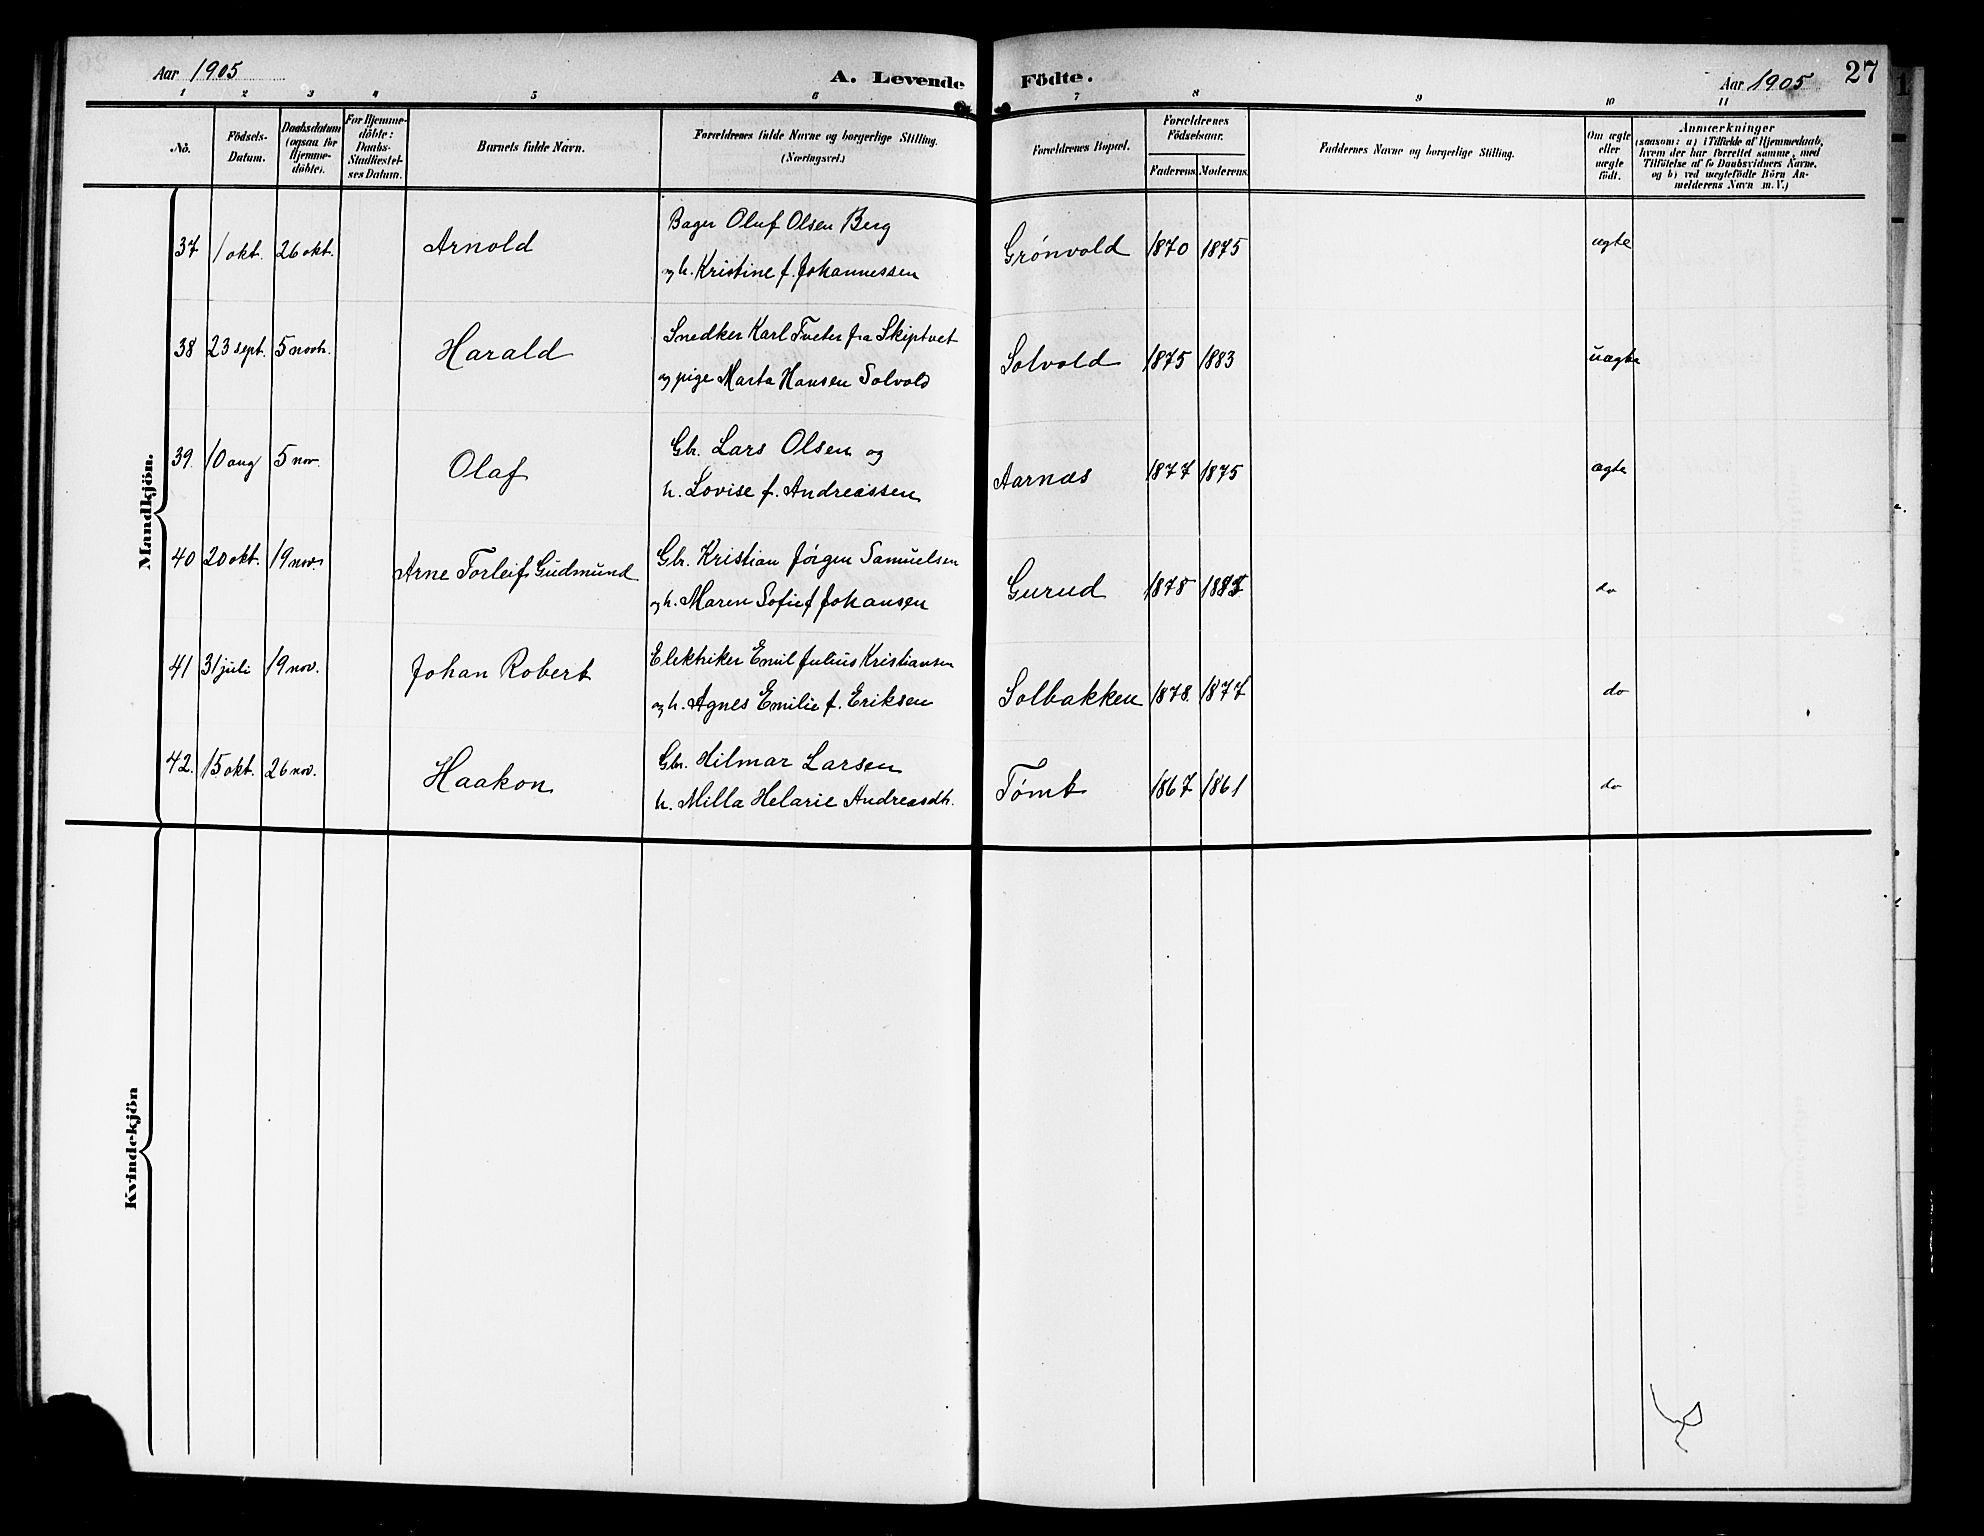 Aar 1905
A. Levende Födte.
Aar 1905
27
1 2 3 4 5 6 7 8 9 10 11
No.
Födsels-
Datum.
Daabsdatum
(ogsaa for
Hjemme-
döbte).
For Hjemme-
döbte:
Daabs-
Stadfæstel-
ses Datum.
Barnets fulde Navn.
Forældrenes fulde Navne og borgerlige Stilling.
(Næringsvei.)
Forældrenes Bopæl.
Forældrenes
Födselsaar.
Faderens. Moderens.
Faddernes Navne og borgerlige Stilling.
Om ægte
eller
uægte
født.
Anmærkninger
(saasom: a) i Tilfælde af Hjemmedaab,
hvem der har forrettet samme, med
Tilföielse af to Daabsvidners Navne.
og b) ved uægtefödte Börn An-
melderens Navn m. V.)
Mandkjön.
37 1 okt. 26 okt. Arnold
Bager Oluf Olsen Berg
og h. Kristine f. Johannessen
Grönvold 1870 1875 ægte
38 23 sept. 5 novb. Harald
Snedker Karl Tveter fra Skiptvet
og pige Marta Hansen Solvold
Solvold 1875 1883 uægte
39. 10 aug 5 nov. Olaf
Gbr. Lars Olsen og
h. Lovise f. Andreassen
Aarnæs 1877 1875 ægte
40 20 okt. 19 nov. Arne Torleif Gudmund
Gbr. Kristian Jörgen Samuelsen
og h. Maren Sofie f Johansen
Gurud 1878 do
41 31 juli 19 nov. Johan Robert
Elektriker Emil Julius Kristiansen
og h. Agnes Emilie f. Eriksen
Solbakken 1878. 1877 do
42. 15 okt. 26 nov. Haakon
Gbr. Hilmar Larsen
h. Milla Helarie Andreasdt.
Tömt 1867 1861 do
Kvindekjön